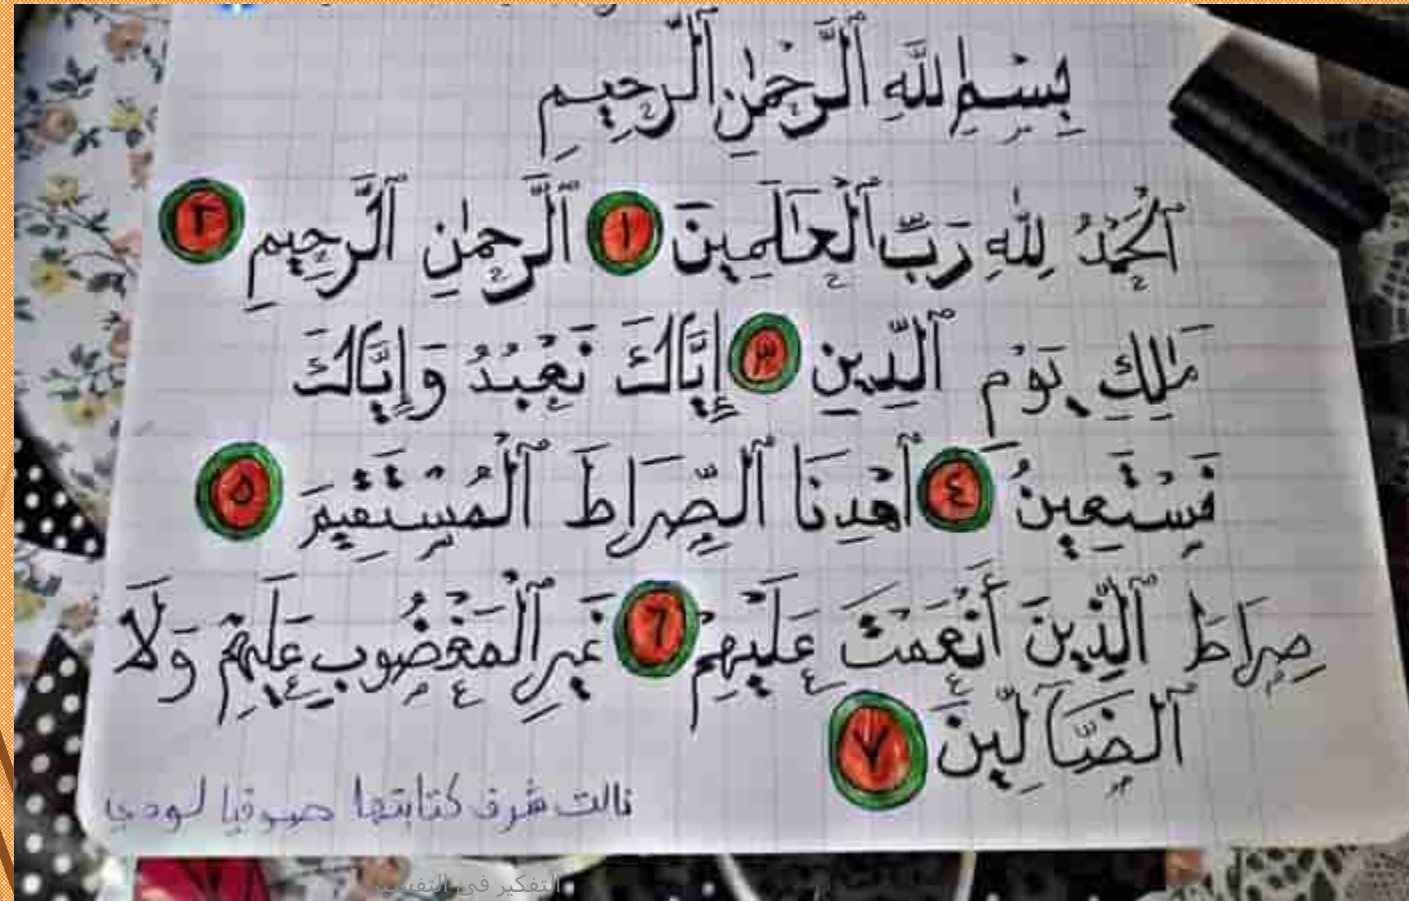 بِسْمِ اللَّهِ ٱلرَّحْمَٰنِ ٱلرَّحِيمِ
ٱلْحَمْدُ لِلَّهِ رَبِّ ٱلْعَالَمِينَ ١ ٱلرَّحْمَٰنِ ٱلرَّحِيمِ ٢
مَٰلِكِ يَوْمِ ٱلدِّينِ ٣ إِيَّاكَ نَعْبُدُ وَإِيَّاكَ
نَسْتَعِينُ ٤ ٱهْدِنَا ٱلصِّرَاطَ ٱلْمُسْتَقِيمَ ٥
صِرَاطَ ٱلَّذِينَ أَنْعَمْتَ عَلَيْهِمْ ٦ غَيْرِ ٱلْمَغْضُوبِ عَلَيْهِمْ وَلَا
ٱلضَّآلِّينَ ٧
نالت شرف كتابتها صوفيا لودي
التفكير في التفسير